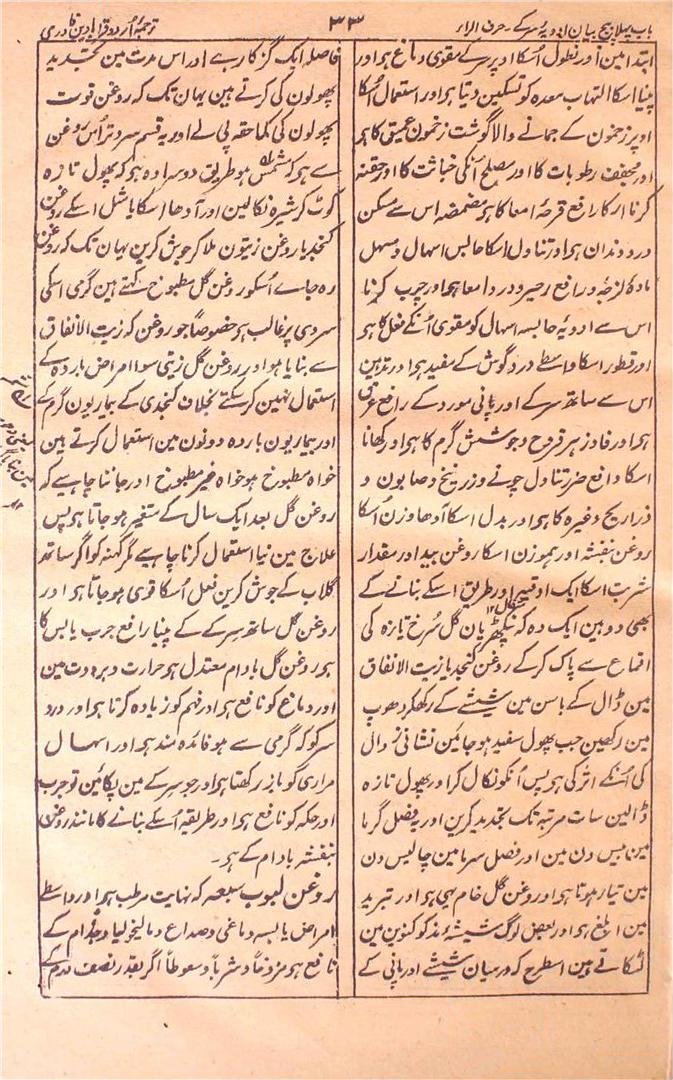 باب پہلا بیچ بیان ادویہ سر کے - حرف الراء
۳۳
ترجمۂ اُردو قرابادین قادری
ابتدا مین اور نطول اُسکا اوپر سر کے مقوی دماغ ہو اور
پینا اسکا التہاب معدہ کو تسکین دیتا ہو اور استعمال اُسکا
اوپر زخمون کے جمانے والا گوشت زخمون عمیق کا ہو
اور مجفف رطوبات کا اور مصلح اُنکی خباثت کا اور حقنہ
کرنا اسکا رافع قرحۂ امعا کا ہو مضمضہ اس سے مسکن
درد دندان ہو اور تناول اسکا حابس اسہال و مسہل
مادۂ لزجہ و رافع زحیر و درد امعا ہو اور چرب کرنا
اس سے ادویۂ حابسہ اسہال کو مقوی اُنکے فعل کا ہو
اور قطور اسکا واسطے درد گوش کے مفید ہو اور تدہین
اس سے ساتھ سرکے اور پانی مورد کے رافع عرق
ہو اور فادزہر قروح و جوشش گرم کا ہو اور کھانا
اسکا دافع ضرر تناول چونے و زرنیخ و صابون و
ذراریح وغیرہ کا ہو اور بدل اسکا آدھا وزن اُسکا
روغن بنفشہ اور ہموزن اسکا روغن بید اور مقدار
شربت اسکا ایک اوقیہ اور طریق اسکے بنانے کے
بھی دو ہین ایک وہ کہ پنکھڑیان گل سُرخ تازہ کی
اقماع سے پاک کر کے روغن کنجد یا زیت الانفاق
مین ڈال کے باسن مین شیشے کے رکھکر دھوپ
مین رکھین جب پھول سفید ہو جائین نشانی زوال
کی اُنکے اثر کی ہو پس اُنکو نکال کر اور پھول تازہ
ڈالین سات مرتبہ تک تجدید کرین اور یہ فصل گرما
مین بیس دن مین اور فصل سرما مین چالیس دن
مین تیار ہوتا ہو اور روغن گل خام یہی ہو اور تبرید
مین ابلغ ہو اور بعض لوگ شیشۂ مذکو کنوین مین
لٹکاتے ہین اسطرح کہ درمیان شیشے اور پانی کے
فاصلہ ایک گز کا رہے اور اس مدت مین تجدید
پھولون کی کرتے ہین یہان تک کہ روغن قوت
پھولون کی کماحقہ پی لے اور یہ قسم سرد تر اُس روغن
سے ہو کہ شمس ہو طریق دوسرا وہ ہو کہ پھول تازہ
کوٹ کر شیرہ نکالین اور آدھا اسکا یا مثل اسکے روغن
کنجد یا روغن زیتون ملا کر جوش کرین یہان تک کہ روغن
رہ جاے اُسکو روغن گل مطبوخ کہتے ہین گرمی اسکی
سردی پر غالب ہو خصوصاً جو روغن کہ زیت الانفاق
سے بنایا ہو اور یہ روغن گل زیتی سوا امراض باردہ کے
استعمال نہین کر سکتے بخلاف کنجدی کے بیماریون گرم کے
اور بیماریون باردہ دونون مین استعمال کرتے ہین
خواہ مطبوخ ہو خواہ غیر مطبوخ اور جاننا چاہیے کہ
روغن گل بعد ایک سال کے متغیر ہو جاتا ہو پس
علاج مین نیا استعمال کرنا چاہیے مگر کہنہ کو اگر ساتھ
گلاب کے جوش کرین فعل اُسکا قوی ہو جاتا ہو اور
روغن گل ساتھ سرکے کے پینا رافع جرب یابس کا
ہو روغن گل بادام معتدل ہو حرارت و برودت مین
اور دماغ کو نافع ہو اور فہم کو زیادہ کرتا ہو اور درد
سر کو کہ گرمی سے ہو فائدہ مند ہو اور اسہال
مراری کو باز رکھتا ہو اور جو سرکے مین پکائین تو جرب
اور حکہ کو نافع ہو اور طریقہ اُسکے بنانے کا مانند روغن
بنفشہ بادام کے ہو۔
روغن لبوب سبعہ کہ نہایت مرطب ہو اور واسطے
امراض یابسہ دماغی و صداع و مالیخولیا و جذام کے
نافع ہو مزوخاً و شرباً و سعوطاً اگر بقدر نصف درم کے